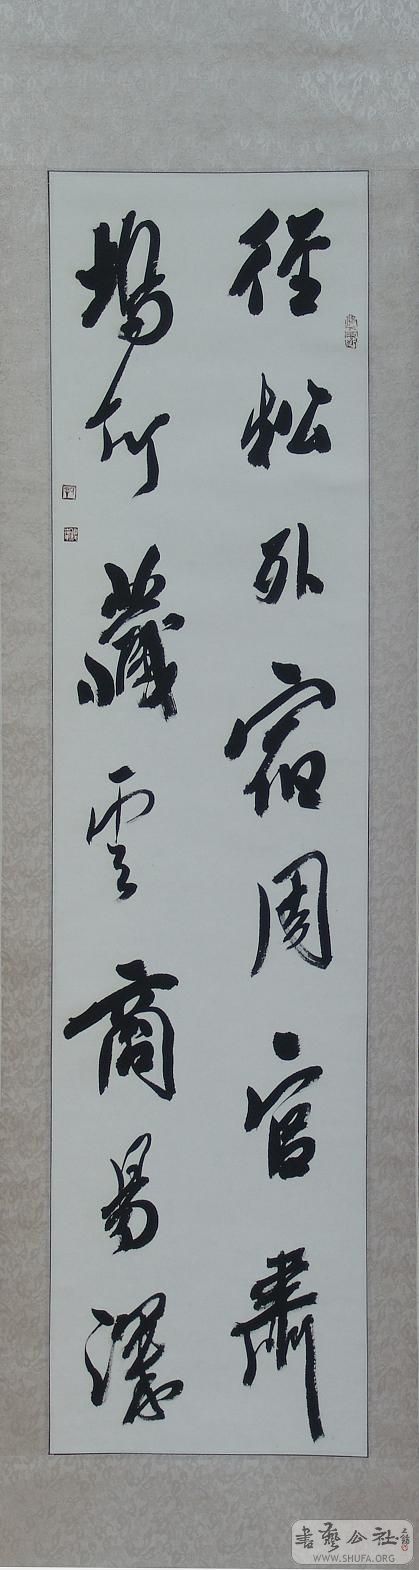 徑松宿周官肅
塢竹藏雲商易
書藝公社
WWW.SHUFA.ORG